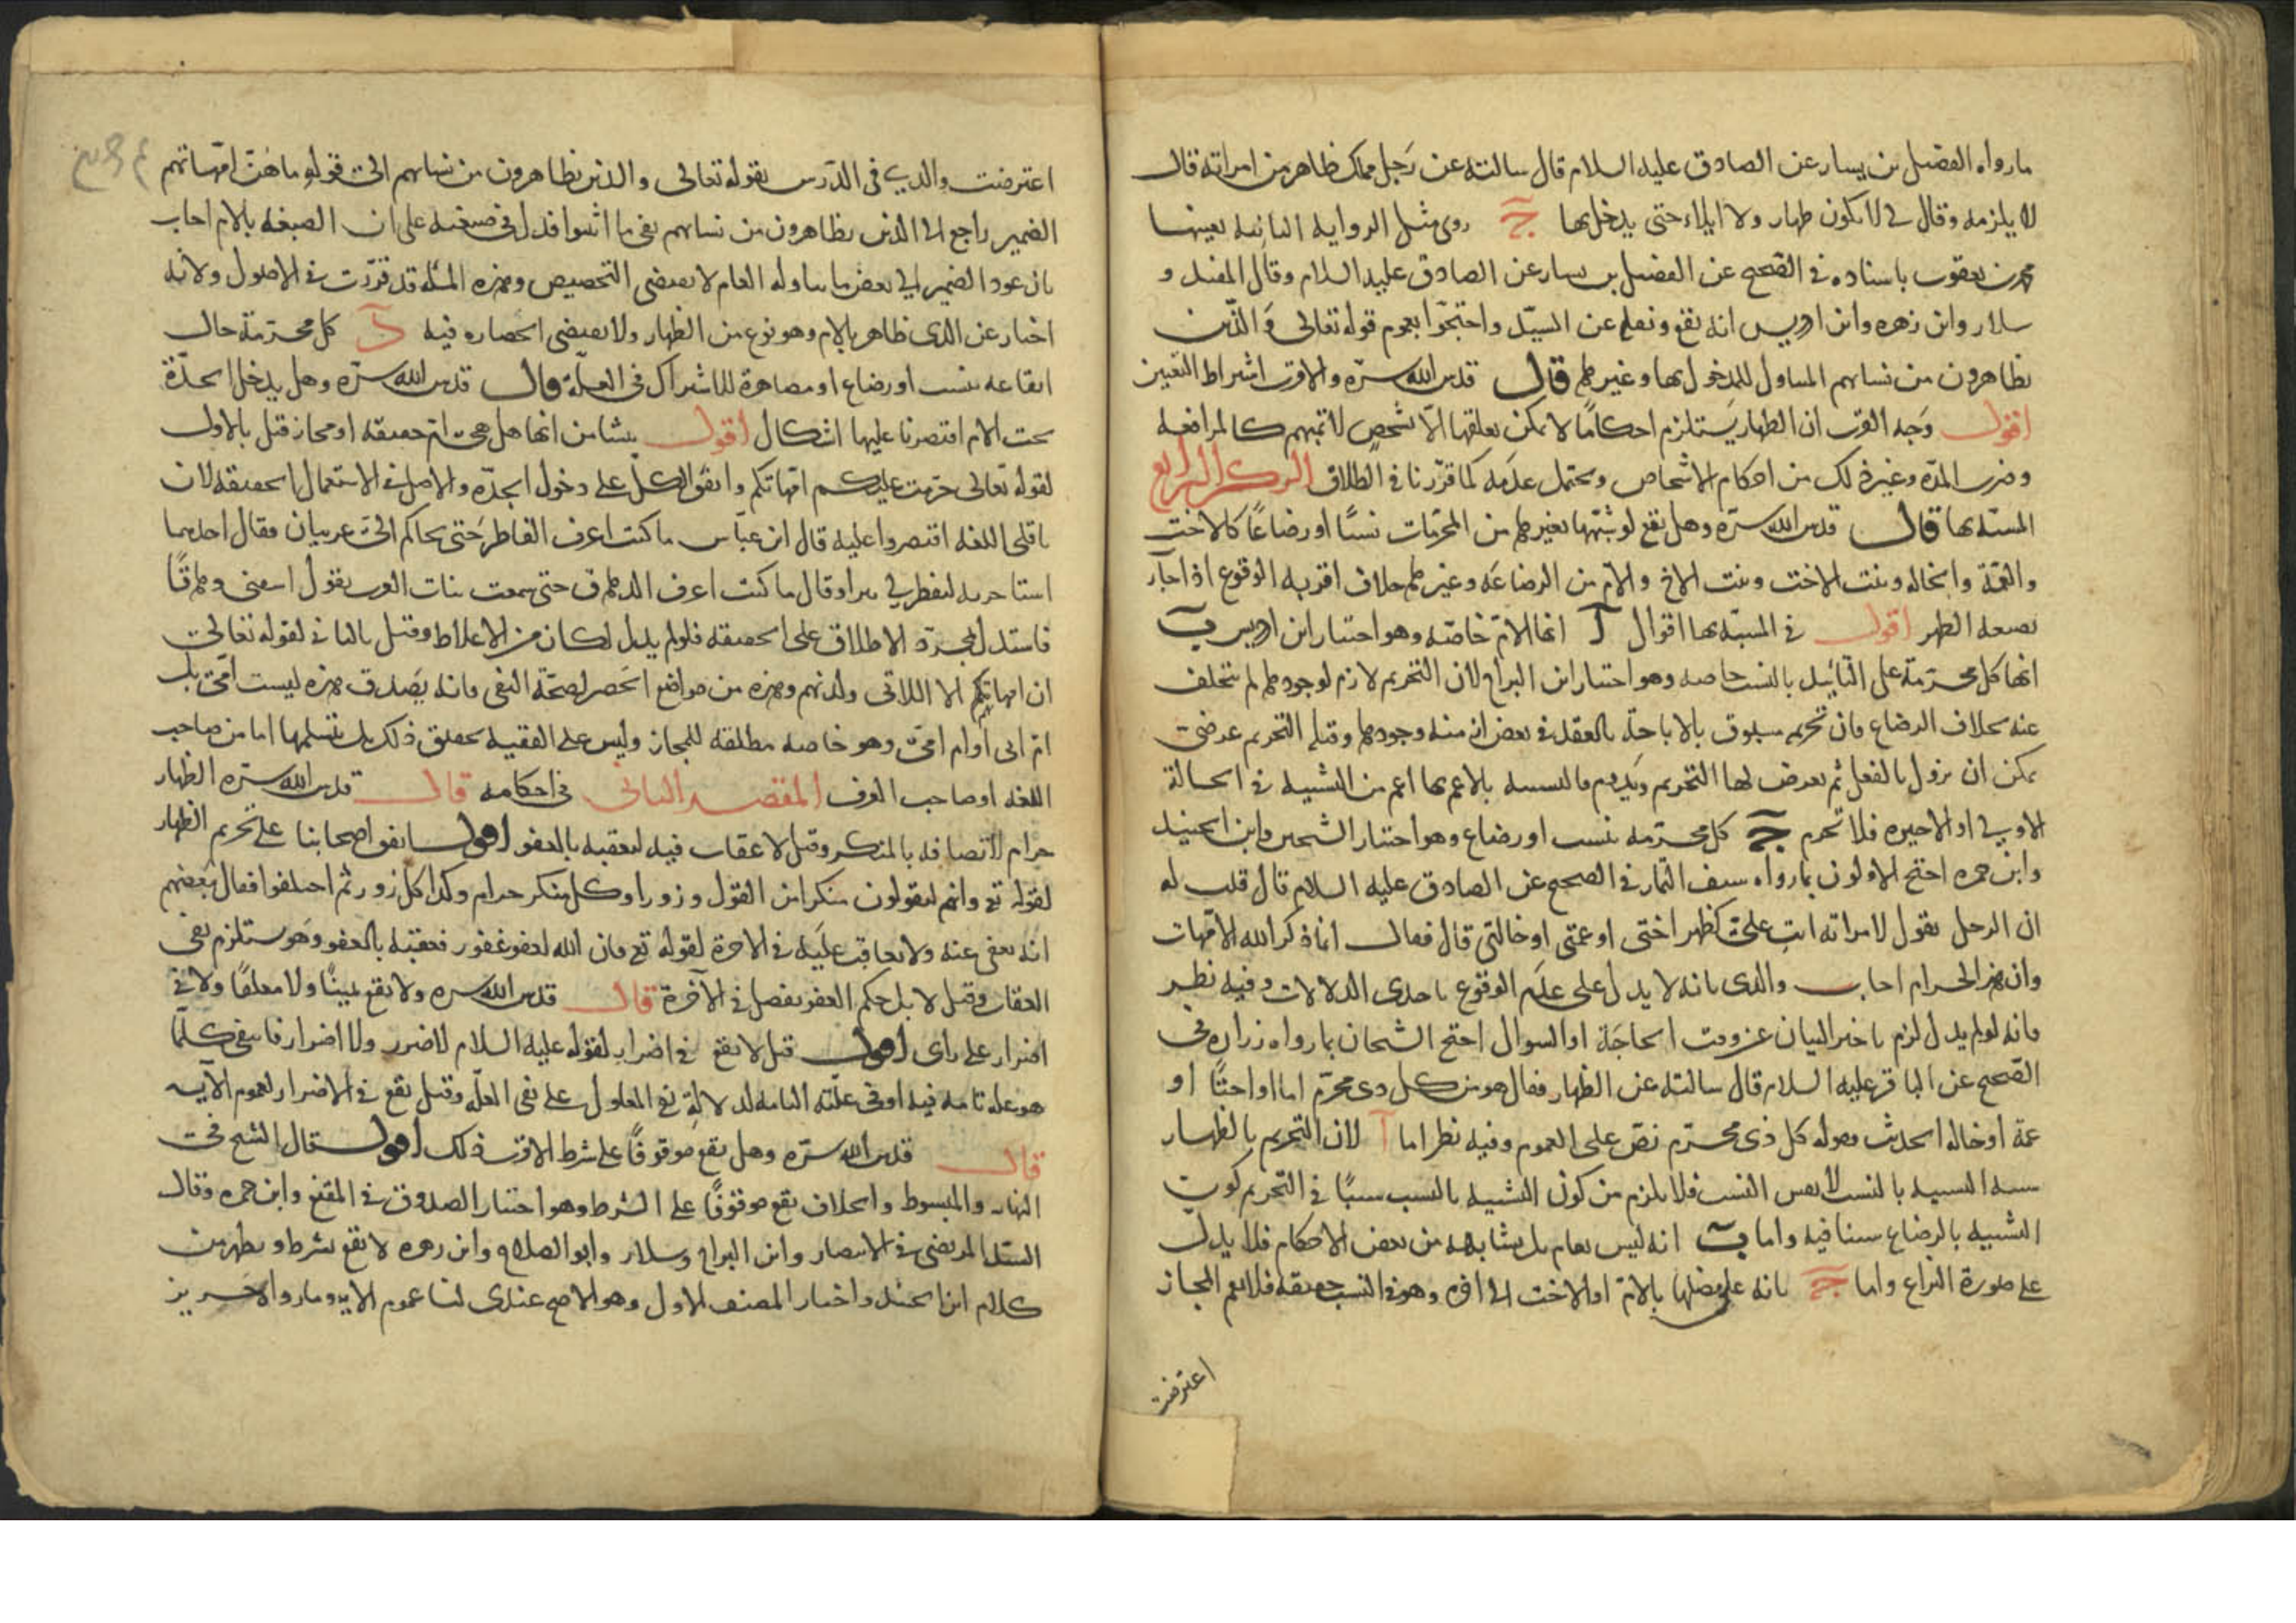 ما رواه الفضيل بن يسار عن الصادق عليه السلام قال سالته عن رجل مملك ظاهر من امراته قال
لا يلزمه وقال لى لا يكون ظهار ولا ايلاء حتى يدخل بها ج روى مثل الرواية الثانيه بعينها
محمد بن يعقوب باسناده فى الصحيح عن الفضيل بن يسار عن الصادق عليه السلام وقال المفيد و
سلار وابن زهره وابن ادريس انه يقع ونقله عن السيد واحتجوا بعموم قوله تعالى والذين
يظاهرون من نسائهم المتناول للمدخول بها وغيرها قال قدس الله سره والاقرب اشتراط التعيين
اقول وجه القرب ان الظهار يستلزم احكاما لا يمكن تعلقها الا بشخص لا بمبهم كالمرافعه
وضرب المدة وغير ذلك من احكام الاشخاص ويحتمل عدمه كما قررنا فى الطلاق الركن الرابع
المشبه بها قال قدس الله سره وهل يقع لو شبهها بغيرها من المحرمات نسبا او رضاعا كالاخت
والعمة والخاله وبنت الاخت وبنت الاخ والام من الرضاعه وغيرها خلاف اقربه الوقوع اذا جاء
بصيغه الظهر اقول فى المشبه بها اقوال آ انها الام خاصه وهو اختيار ابن ادريس ب
انها كل محرمة على التابيد بالنسب خاصه وهو اختيار ابن البراج لان التحريم لازم لوجودها لم يتخلف
عنه بخلاف الرضاع فان تحريمه مسبوق بالاباحة بالعقد فى بعض ازمنة وجودها وقبله التحريم عرضى
يمكن ان يزول بالفعل ثم يعرض لها التحريم ويدوم فالتشبيه بالاعم بها اعم من التشبيه فى الحالة
الاولى او الاخيره فلا تحرم ج كل محرمه بنسب او رضاع وهو اختيار الشيخين وابن الجنيد
وابن حمزه احتج الاولون بما رواه سيف التمار فى الصحيح عن الصادق عليه السلام قال قلت له
ان الرجل يقول لامراته انت على كظهر اختى او عمتى او خالتى قال فقال انما ذكر الله الامهات
وان هذا لحرام اجاب والدى بانه لا يدل على عدم الوقوع باحدى الدلالات وفيه نظر
فانه لو لم يدل لزم تاخير البيان عن وقت الحاجة او السوال احتج الشيخان بما رواه زراره فى
الصحيح عن الباقر عليه السلام قال سالته عن الظهار فقال هو من كل ذى محرم اما او اختا او
عمة او خالة الحديث وقوله كل ذى محرم نص على العموم وفيه نظر اما آ لان التحريم بالظهار
سببه التشبيه بالنسب لا نفس النسب فلا يلزم من كون التشبيه بالنسب سببا فى التحريم كون
التشبيه بالرضاع سببا فيه واما ب انه ليس بعام بل يشابهه من بعض الاحكام فلا يدل
على صورة النزاع واما ج بانه على مثلها بالام او الاخت الى اخره وهو فى النسب حقيقة فلا يعم المجاز
اعترضت
اعترضت والدى فى الدرس بقوله تعالى والذين يظاهرون من نسائهم الى قوله ما هن امهاتهم
الضمير راجع الى الذين يظاهرون من نسائهم نفى ما اثبتوا فدل فى صيغته على ان الصيغه بالام اجاب
بان عود الضمير الى بعض ما يتناوله العام لا يقتضى التخصيص وهذه المسئلة قد قررت فى الاصول ولانه
اخبار عن الذى ظاهر بالام وهو نوع من الظهار ولا يقتضى انحصاره فيه د كل محرمة حال
ايقاعه بنسب او رضاع او مصاهرة للاشتراك فى العلة قال قدس الله سره وهل يدخل الجدة
تحت الام ان اقتصرنا عليها اشكال اقول ينشا من انها هل هى ام حقيقه او مجاز قيل بالاول
لقوله تعالى حرمت عليكم امهاتكم واتفق الكل على دخول الجدة والاصل فى الاستعمال الحقيقه لان
ناقلى اللغه اقتصروا عليه قال ابن عباس ما كنت اعرف الفاطر حتى تحاكم الى عربيان فقال احدهما
فاستدل بمجرد الاطلاق على الحقيقه فلو لم يدل لكان من الاغلاط وقيل بالثانى لقوله تعالى
ان امهاتهم الا اللائى ولدنهم وهذه من مواضع الحصر لصحة النفى فانه يصدق هذه ليست امى بل
ام ابى او ام امى وهو خاصه مطلقه للمجاز وليس على الفقيه تحقيق ذلك بل يتسلمها اما من صاحب
اللغه او صاحب العرف المقصد الثانى فى احكامه قال قدس الله سره الظهار
حرام لاتصافه بالمنكر وقيل لا عقاب فيه لتعقبه بالعفو اقول اتفق اصحابنا على تحريم الظهار
لقوله تع وانهم ليقولون منكرا من القول وزورا وكل منكر حرام وكذا كل زور ثم اختلفوا فقال بعضهم
انه يعفى عنه ولا يعاقب عليه فى الاخرة لقوله تع فان الله لعفو غفور فعقبه بالعفو وهو يستلزم نفى
العقاب وقيل لا بل حكم العفو يفصل فى الآخرة قال قدس الله سره ولا يقع يمينا ولا معلقا ولا فى
اضرار على راى اقول قيل لا يقع فى اضرار لقوله عليه السلام لا ضرر ولا اضرار فانتفى كلما
هو علة تامه فيه او فى علته التامه لدلالة نفى المعلول على نفى العلة وقيل يقع فى الاضرار لعموم الآيه
قال قدس الله سره وهل يقع موقوفا على شرط الاقرب ذلك اقول قال الشيخ فى
النهايه والمبسوط والخلاف يقع موقوفا على الشرط وهو اختيار الصدوق فى المقنع وابن حمزه وقال
السيد المرتضى فى الانتصار وابن البراج وسلار وابو الصلاح وابن زهره لا يقع بشرط ويظهر من
كلام ابن الجنيد واختار المصنف الاول وهو الاصح عندى لنا عموم الايه وما رواه حريز